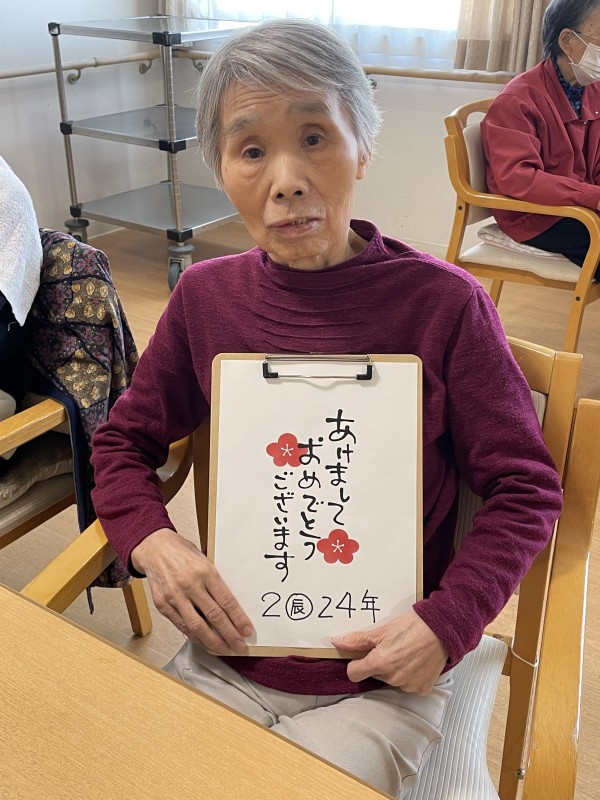 あけまして
おめでとう
ございます
2辰24年